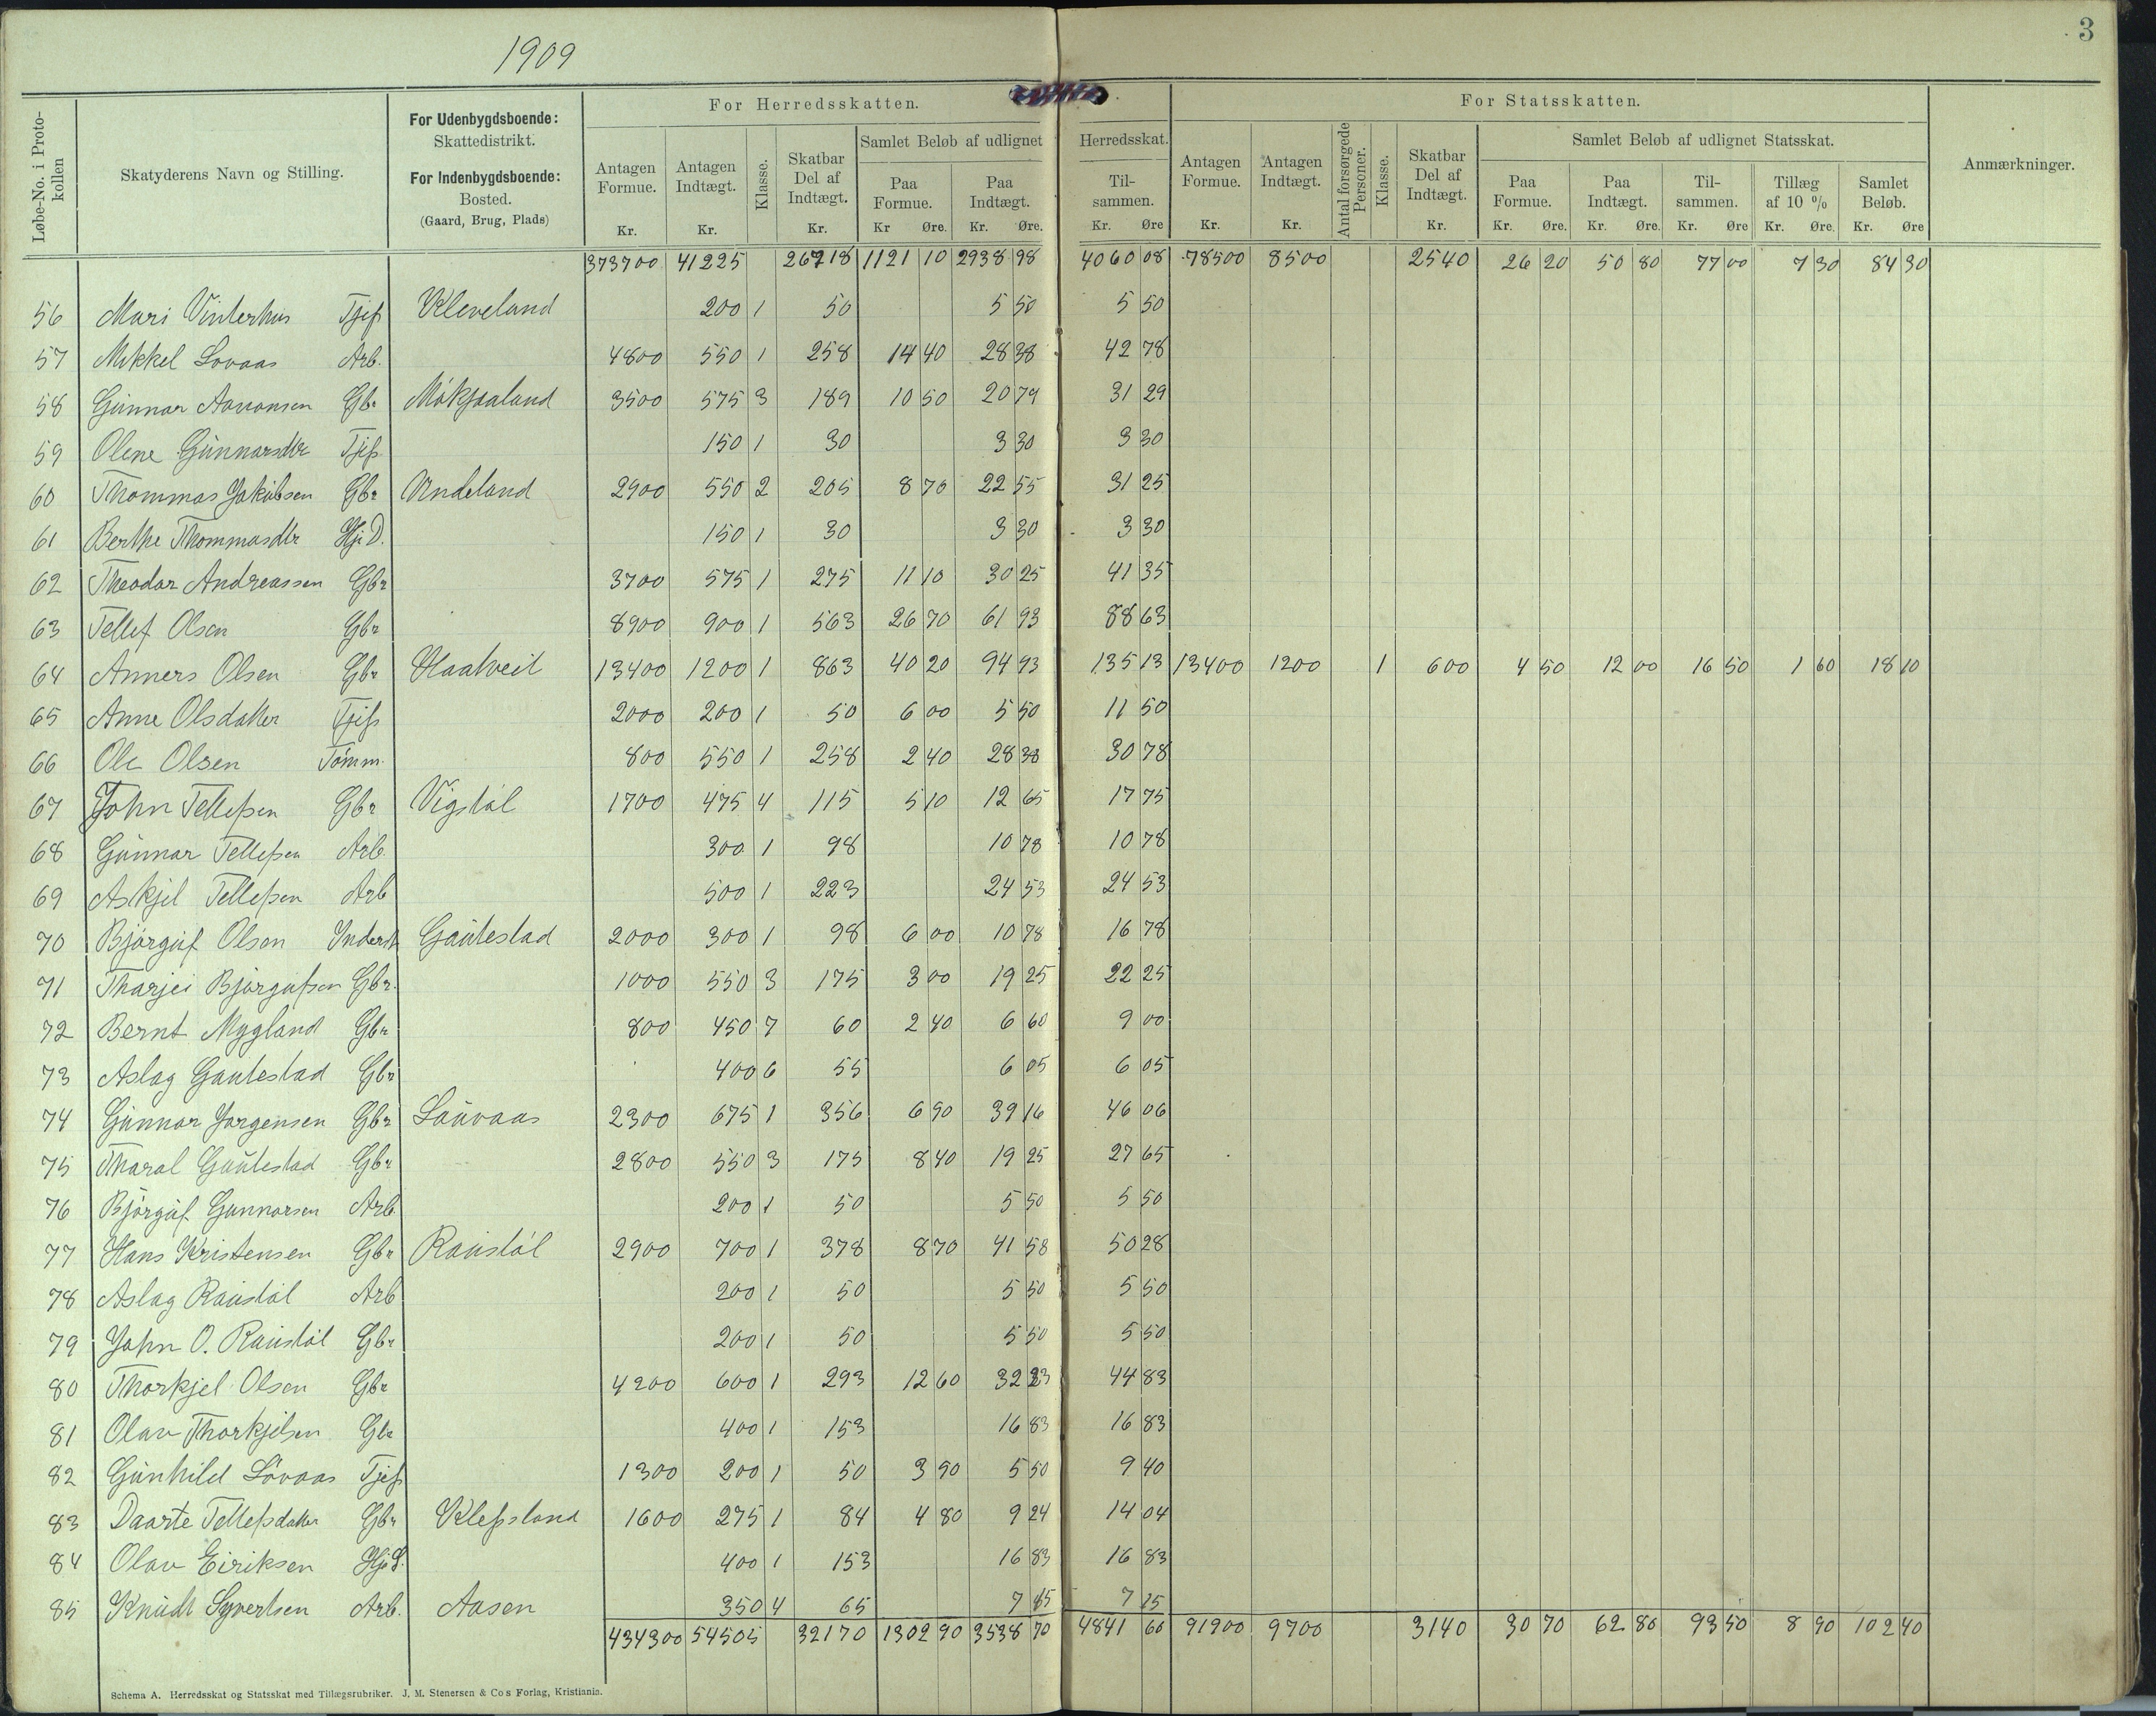 1909
3
Løbe-No. i Protokollen | Skatyderens Navn og Stilling. | For Udenbygdsboende: Skattedistrikt. For Indenbygdsboende: Bosted. (Gaard, Brug, Plads) | For Herredsskatten. | For Statsskatten. | Anmærkninger.
Antagen Formue. Kr. | Antagen Indtægt. Kr. | Klasse. | Skatbar Del af Indtægt. Kr. | Samlet Beløb af udlignet Herredsskat. | Paa Formue. Kr Øre. | Paa Indtægt. Kr. Øre. | Tilsammen. Kr. Øre | Antagen Formue. Kr. | Antagen Indtægt. Kr. | Antal forsørgede Personer. | Klasse. | Skatbar Del af Indtægt. Kr. | Samlet Beløb af udlignet Statsskat. | Paa Formue. Kr. Øre. | Paa Indtægt. Kr. Øre. | Tilsammen. Kr. Øre | Tillæg af 10 % Kr. Øre. | Samlet Beløb. Kr. Øre
373700 41225 26718 1121 10 2938 98 4060 08 78500 8500 2540 26 20 50 80 77 00 7 30 84 30
56 Mari Vinterhus Tjep Kleveland 200 1 50 5 50 5 50
57 Mikkel Lovaas Arb. 4800 550 1 258 14 40 28 38 42 78
58 Gunnar Aanonsen Gbr Mökjaaland 3500 575 3 189 10 50 20 79 31 29
59 Olene Gunnarsdtr Tjep 150 1 30 3 30 3 30
60 Thommas Jakubsen Gbr Undeland 2900 550 2 205 8 70 22 55 31 25
61 Berthe Thommasdtr Hj.D. 150 1 30 3 30 3 30
62 Theodor Andreassen Gbr 3700 575 1 275 11 10 30 25 41 35
63 Tellef Olsen Gbr 8900 900 1 563 26 70 61 93 88 63
64 Anners Olsen Gbr Haatveit 13400 1200 1 863 40 20 94 93 135 13 13400 1200 1 600 4 50 12 00 16 50 1 60 18 10
65 Anne Olsdatter Tjep 2000 200 1 50 6 00 5 50 11 50
66 Ole Olsen Tömm. 800 550 1 258 2 40 28 38 30 78
67 John Tellefsen Gbr Vigstöl 1700 475 4 115 5 10 12 65 17 75
68 Gunnar Tellefsen Arb. 300 1 98 10 78 10 78
69 Askjel Tellefsen Arb 500 1 223 24 53 24 53
70 Björguf Olsen Inderst Gautestad 2000 300 1 98 6 00 10 78 16 78
71 Tharjei Björgufsen Gbr. 1000 550 3 175 3 00 19 25 22 25
72 Bernt Mygland Gbr 800 450 7 60 2 40 6 60 9 00
73 Aslag Gautestad Gbr 400 6 55 6 05 6 05
74 Gunnar Jorgensen Gbr Lauvaas 2300 675 1 356 6 90 39 16 46 06
75 Tharal Gautestad Gbr 2800 550 3 175 8 40 19 25 27 65
76 Björguf Gunnarsen Arb. 200 1 50 5 50 5 50
77 Hans Kristensen Gbr Raustöl 2900 700 1 378 8 70 41 58 50 28
78 Aslag Raustöl Arb 200 1 50 5 50 5 50
79 John O. Raustöl Gbr 200 1 50 5 50 5 50
80 Thorkjel Olsen Gbr 4200 600 1 293 12 60 32 23 44 83
81 Olav Thorkjelsen Gbr 400 1 153 16 83 16 83
82 Gunhild Lövaas Tjep 1300 200 1 50 3 90 5 50 9 40
83 Daarte Tellefsdatter Gbr Klepsland 1600 275 1 84 4 80 9 24 14 04
84 Olav Eiriksen Hj.S. 400 1 153 16 83 16 83
85 Knudt Syvertsen Arb. Aasen 350 4 65 7 15 7 15
434300 54505 32170 1302 90 3538 70 4841 60 91900 9700 3140 30 70 62 80 93 50 8 90 102 40
Schema A. Herredsskat og Statsskat med Tillægsrubriker. J. M. Stenersen & Co's Forlag, Kristiania.